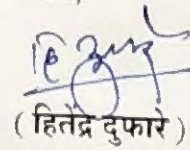 ( हितेंद्र दुफारे )